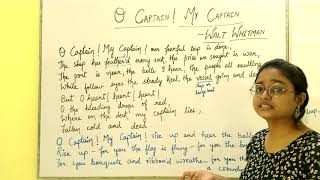 O CAPTAIN! MY CAPTAIN
- WALT WHITMAN
O Captain! My Captain! our fearful trip is done,
The ship has weather'd every rack, the prize we sought is won,
The port is near, the bells I hear, the people all exulting,
While follow eyes the steady keel, the vessel grim and
But O heart! heart! heart!
O the bleeding drops of red,
Where on the deck my captain lies,
Fallen cold and dead.
O Captain! My Captain! rise up and hear the bells
Rise up - for you the flag is flung - for you the
For you bouquets and ribbon'd wreaths - for you the
a